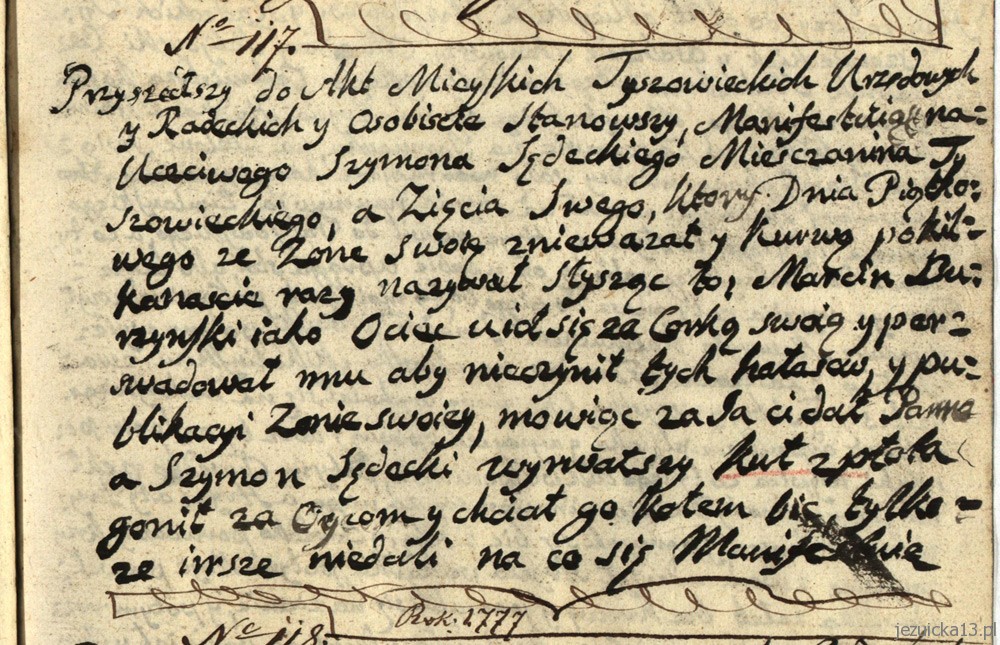 No 117.
Przyszełszy do Akt Mieyskich Tyszowieckich Urzędowych
y Radeckich y Osobiscie Stanowszy, Manifestuię na=
Uczciwego Szymona Sędeckiego Miesczanina Ty
szowieckiego, a Zięcia Swego, Ktory Dnia Piątko=
wego ze Zone swoię zniewazał y Kurwą pokil=
kanascie razy nazywał słysząc to, Marcin Bu=
rzynski iako Ociec uioł się za Corką swoią y per=
swadował mu aby nieczynił tych hałasow, y pu=
blikacyi Zonie swoiey, mowiąc za Ja ci dał Panne
a Szymon Sędecki wyrwałszy Kuł z płota
gonił za Oycom y chciał go Kołem bic, tylko =
ze insze niedali na co się Manifestuię
Rok. 1777
No 118.
jezuicka13.pl